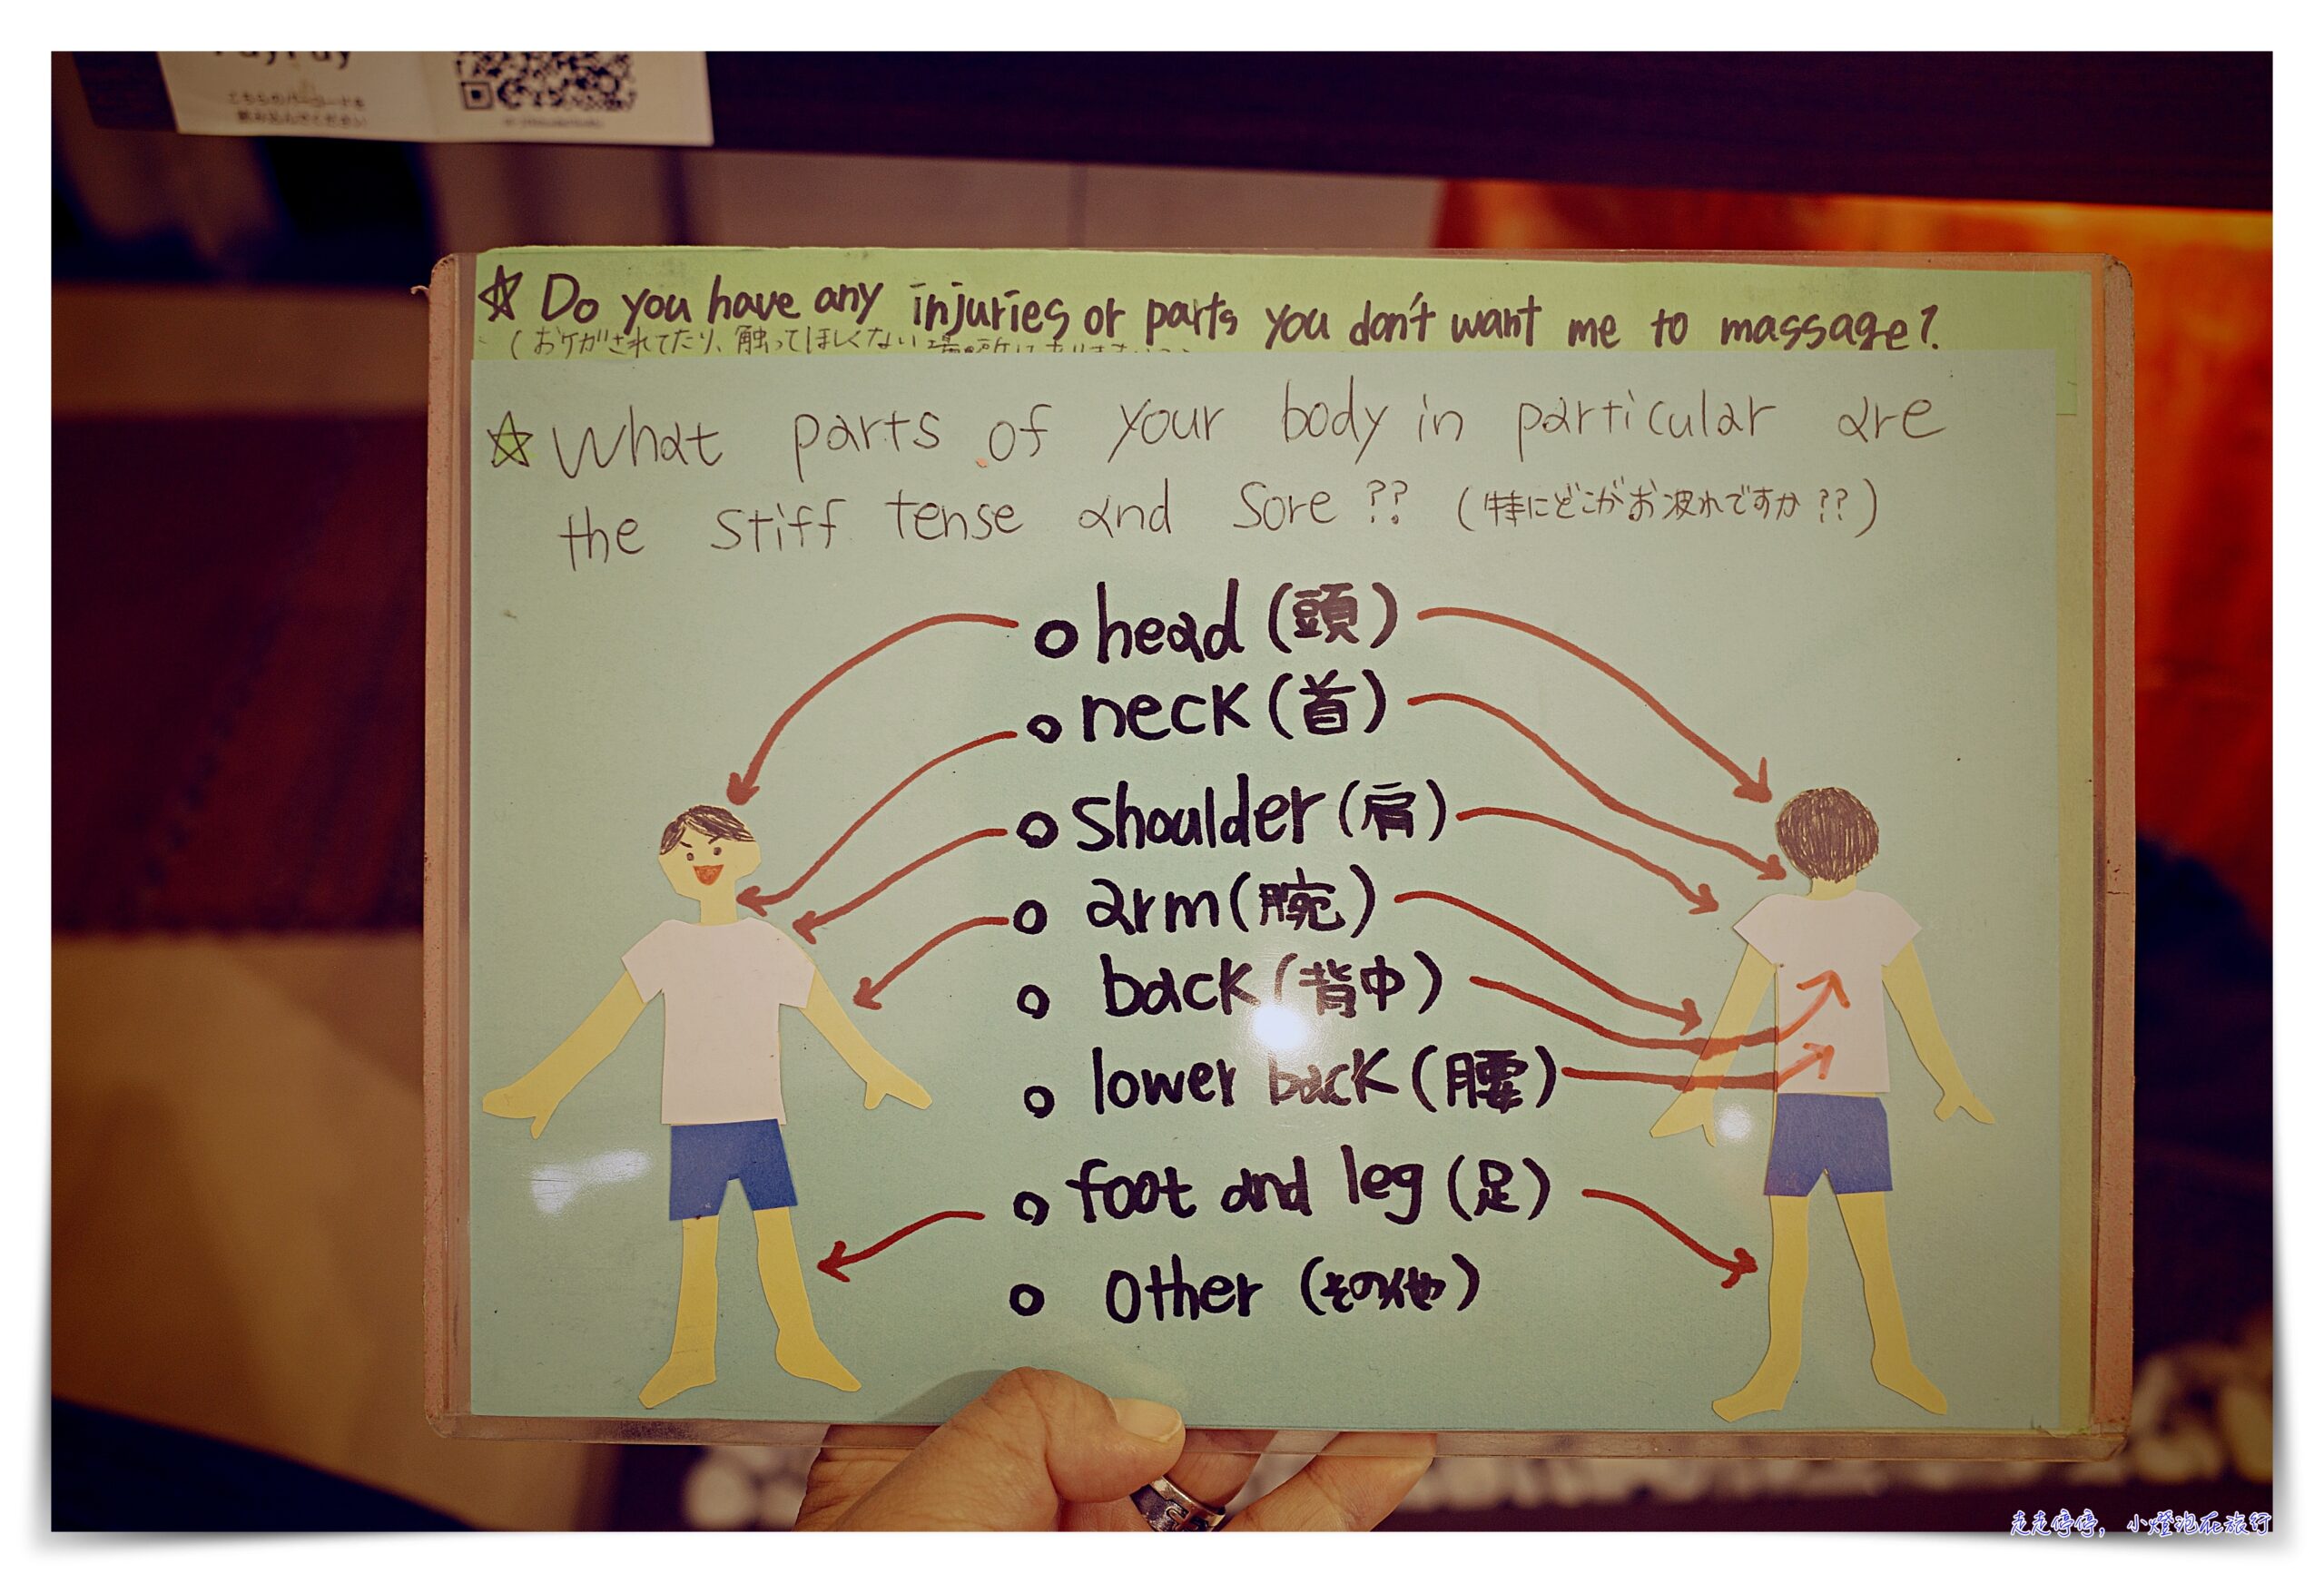 PayPay
こちらのバーコードを
読み込んでください
☆ Do you have any injuries or parts you don't want me to massage?
(おケガされてたり、触ってほしくない場所はありますか?
☆ What parts of your body in particular are
the stiff tense and sore ?? (特にどこがお疲れですか??)
head (頭)
neck (首)
shoulder (肩)
arm (腕)
back (背中)
lower back (腰)
foot and leg (足)
other (その他)
走走停停, 小燈泡在旅行